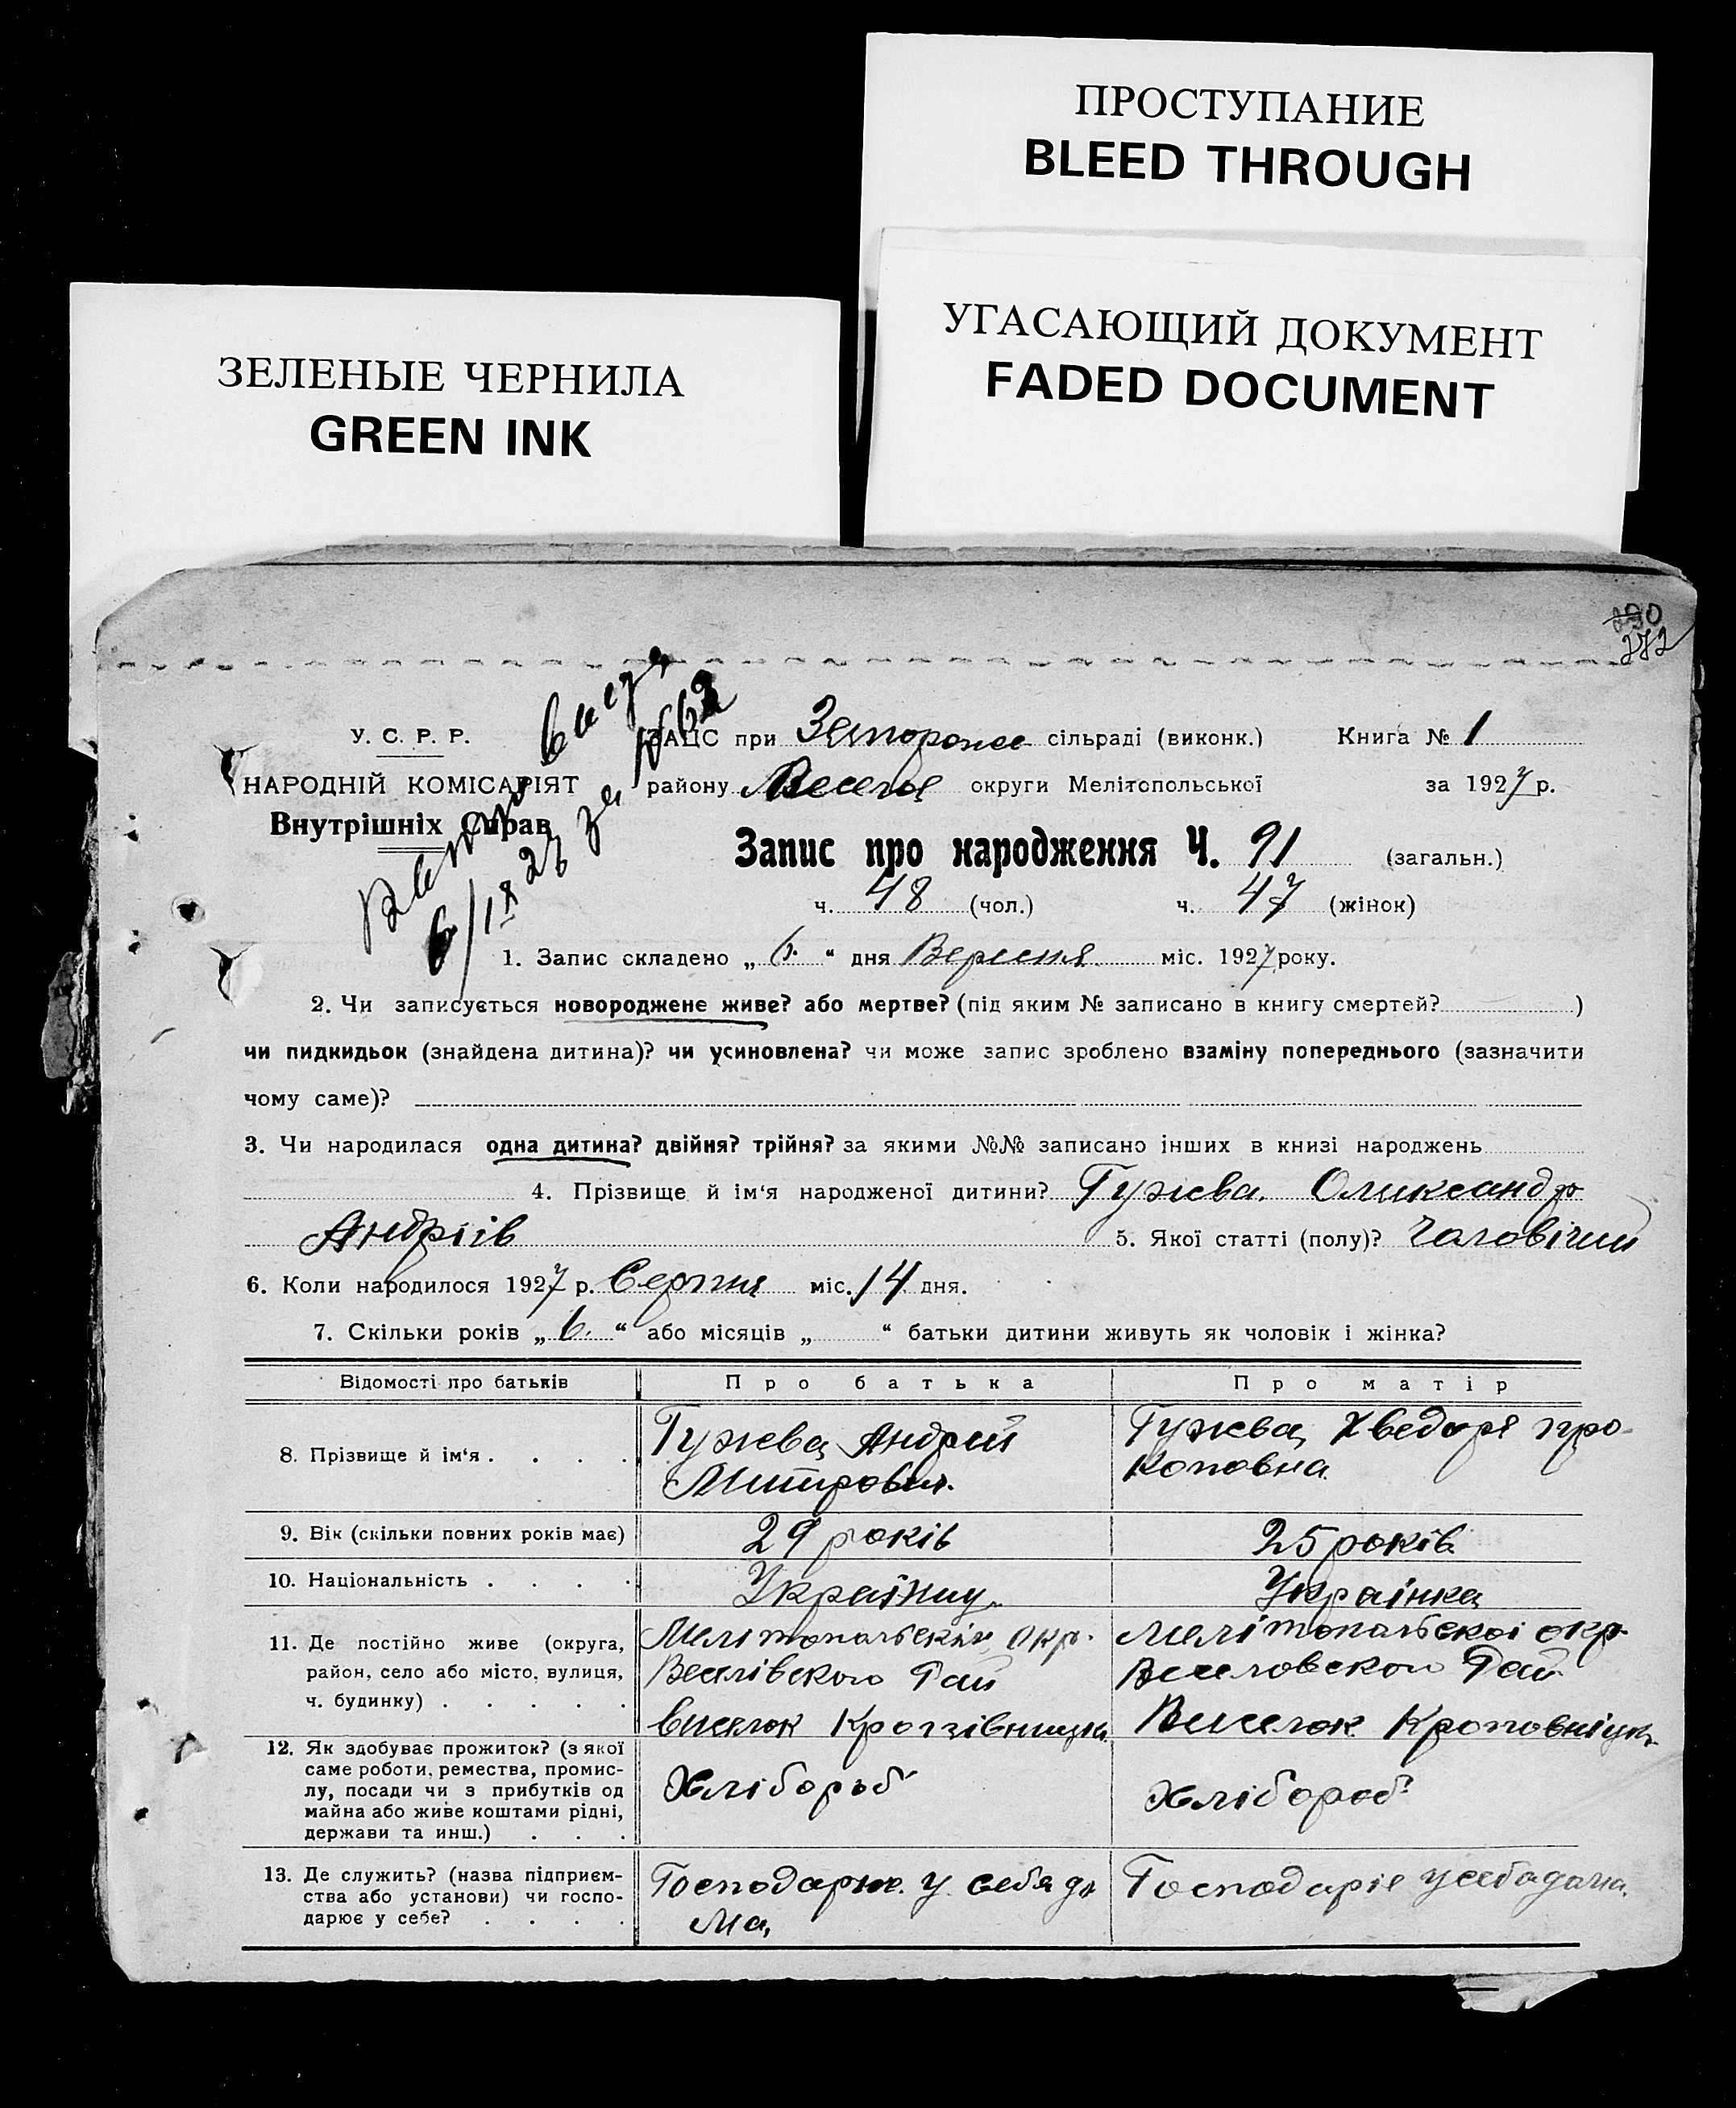 ПРОСТУПАНИЕ
BLEED THROUGH
УГАСАЮЩИЙ ДОКУМЕНТ
FADED DOCUMENT
ЗЕЛЕНЫЕ ЧЕРНИЛА
GREEN INK
272
У. С. Р. Р.
НАРОДНІЙ КОМІСАРІЯТ
Внутрішніх Справ
ЗАЦС при Запорожсе сільраді (виконк.) Книга № 1
району округи Мелітопольської за 1927 р.
Запис про народження Ч. 91 (загальн.)
ч. 48 (чол.) ч. 47 (жінок)
1. Запис складено „ 6. “ дня Вересня міс. 1927 року.
2. Чи записується новороджене живе? або мертве? (під яким № записано в книгу смертей? )
чи пидкидьок (знайдена дитина)? чи усиновлена? чи може запис зроблено взаміну попереднього (зазначити
чому саме)?
3. Чи народилася одна дитина? двійня? трійня? за якими №№ записано інших в книзі народжень
4. Прізвище й ім‘я народженої дитини? Гужва. Олександр
Андріів 5. Якої статті (полу)? Чоловічий
6. Коли народилося 1927 р. Серпня міс. 14 дня.
7. Скільки років „ 6. “ або місяців „ “ батьки дитини живуть як чоловік і жінка?
Відомості про батьків Про батька Про матір
8. Прізвище й ім‘я . . . . Гужва Андрей Митрович. Гужва Хведоря Прокоповна
9. Вік (скільки повних років має) 29 років 25 років
10. Національність . . . . Українец Українка
11. Де постійно живе (округа, Мелітопольскій окр. Мелітопольскоі окр.
район, село або місто, вулиця, Веселівского Рай Веселовского Рай
ч. будинку) . . . . . Виселок Кропівницк. Виселок Кроповніцк.
12. Як здобуває прожиток? (з якої
саме роботи, ремества, промис-
лу, посади чи з прибутків од Хлібороб Хлібороб
майна або живе коштами рідні,
держави та инш.) . . .
13. Де служить? (назва підприєм- Господарює у себя до Господаріе у себа дома.
ства або установи) чи госпо- ма,
дарює у себе? . . . .